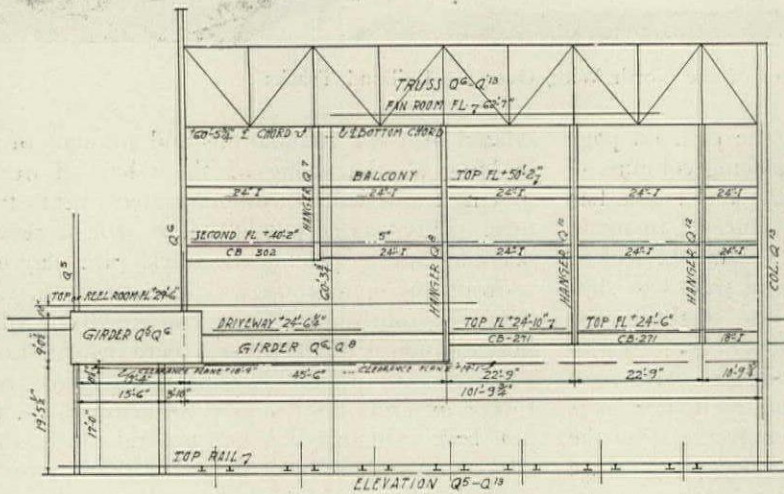 TRUSS Q6-Q13
FAN ROOM FL. 62'-7"
BOTTOM CHORD
HANGER Q7
BALCONY
TOP FL +50'-2"
24" I
24" I
24" I
24" I
24" I
Q6
SECOND FL +40'-2"
5"
CB 302
24" I
24" I
24" I
24" I
HANGER Q8
HANGER Q12
COL. Q13
Q5
TOP OF REEL ROOM FL 29'-6"
GIRDER Q5Q6
DRIVEWAY +24'-6¾"
GIRDER Q6-Q8
TOP FL +24'-10"
TOP FL +24'-6"
CB-271
CB-271
18" I
CLEARANCE PLANE
CLEARANCE PLANE
45'-6"
22'-9"
22'-9"
10'-9¾"
15'-6"
3'-10"
101'-9¾"
19'-5½"
17'-0"
TOP RAIL
ELEVATION Q5-Q13